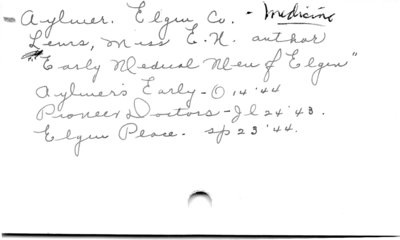 Aylmer. Elgin Co. - Medicine
Lewis, Miss E. N. author
"Early Medical Men of Elgin"
Aylmer's Early - O 14 '44
Pioneer Doctors - Jl 24 '43.
Elgin Place. Sp 23 '44.